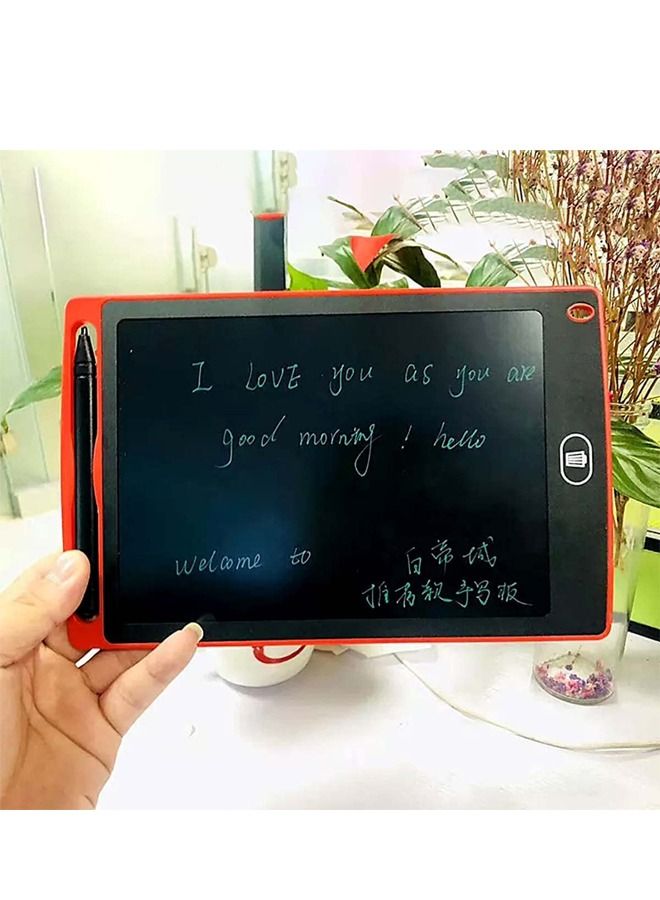 I LOVE you as you are
good morning! hello
Welcome to 白帝城
推荐款手写板